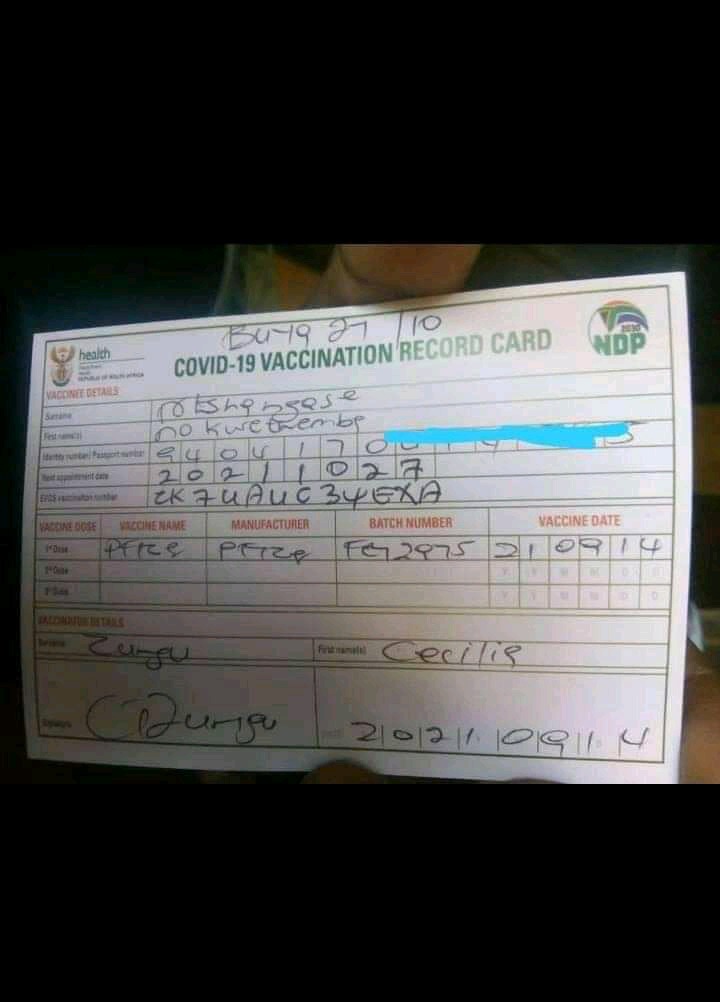 Buya 27/10
health
Department:
Health
REPUBLIC OF SOUTH AFRICA
COVID-19 VACCINATION RECORD CARD
2030
NDP
VACCINEE DETAILS
Surname Ntshangase
First name(s) nokwethemba
Identity number/ Passport number 9404170
Next appointment date 20211027
EVDS vaccination number
VACCINE DOSE VACCINE NAME MANUFACTURER BATCH NUMBER VACCINE DATE
1st Dose 210914
2nd Dose Y Y M M D D
3rd Dose Y Y M M D D
VACCINATOR DETAILS
Surname Zungu First name(s) Cecilia
Signature CZungu Date 20210914